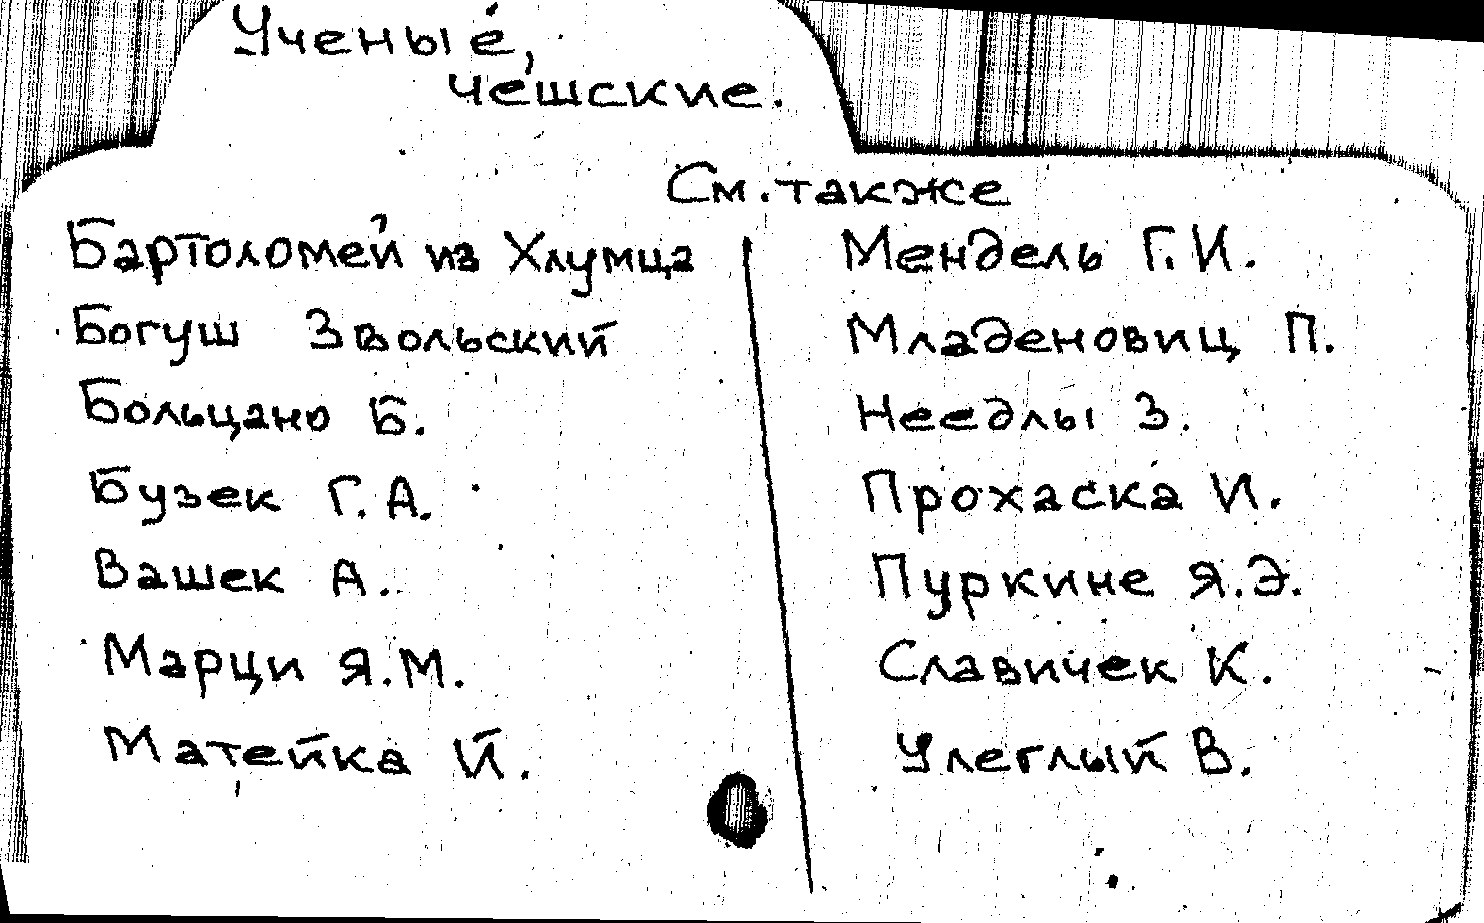 Ученые,
чешские.
См. также
Бартоломей из Хлумца
Богуш Звольский
Больцано Б.
Бузек Г.А.
Вашек А.
Марци Я.М.
Матейка Й.
Мендель Г.И.
Младеновиц П.
Неедлы З.
Прохаска И.
Пуркине Я.Э.
Славичек К.
Улеглый В.